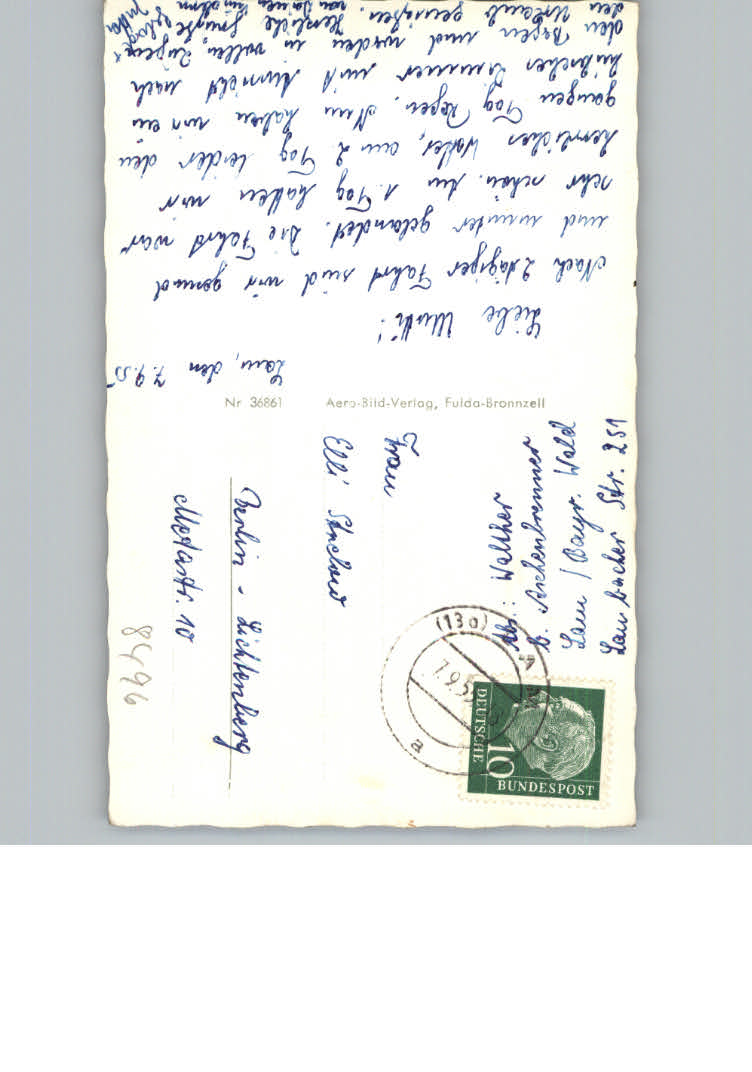 Lam, den 7.9.55
Liebe Mutti!
Nach 2tägiger Fahrt sind wir gesund
und munter gelandet. Die Fahrt war
sehr schön. Am 1. Tag hatten wir
herrliches Wetter, am 2. Tag leider den
ganzen Tag Regen. Nun haben wir ein
hübsches Zimmer mit Aussicht nach
den Bergen und werden in vollen Zügen
den Urlaub genießen. Herzliche Grüße
von Deinen Kindern
Nr 36861 Aero-Bild-Verlag, Fulda-Bronnzell
Frau
Elli
Berlin - Lichtenberg
Mozartstr. 10
Abs.: Walther
b. Aschenbrenner
Lam / Bayr. Wald
Lambacher Str. 251
(13a)
7.9.5
a
DEUTSCHE
BUNDESPOST
10
8496